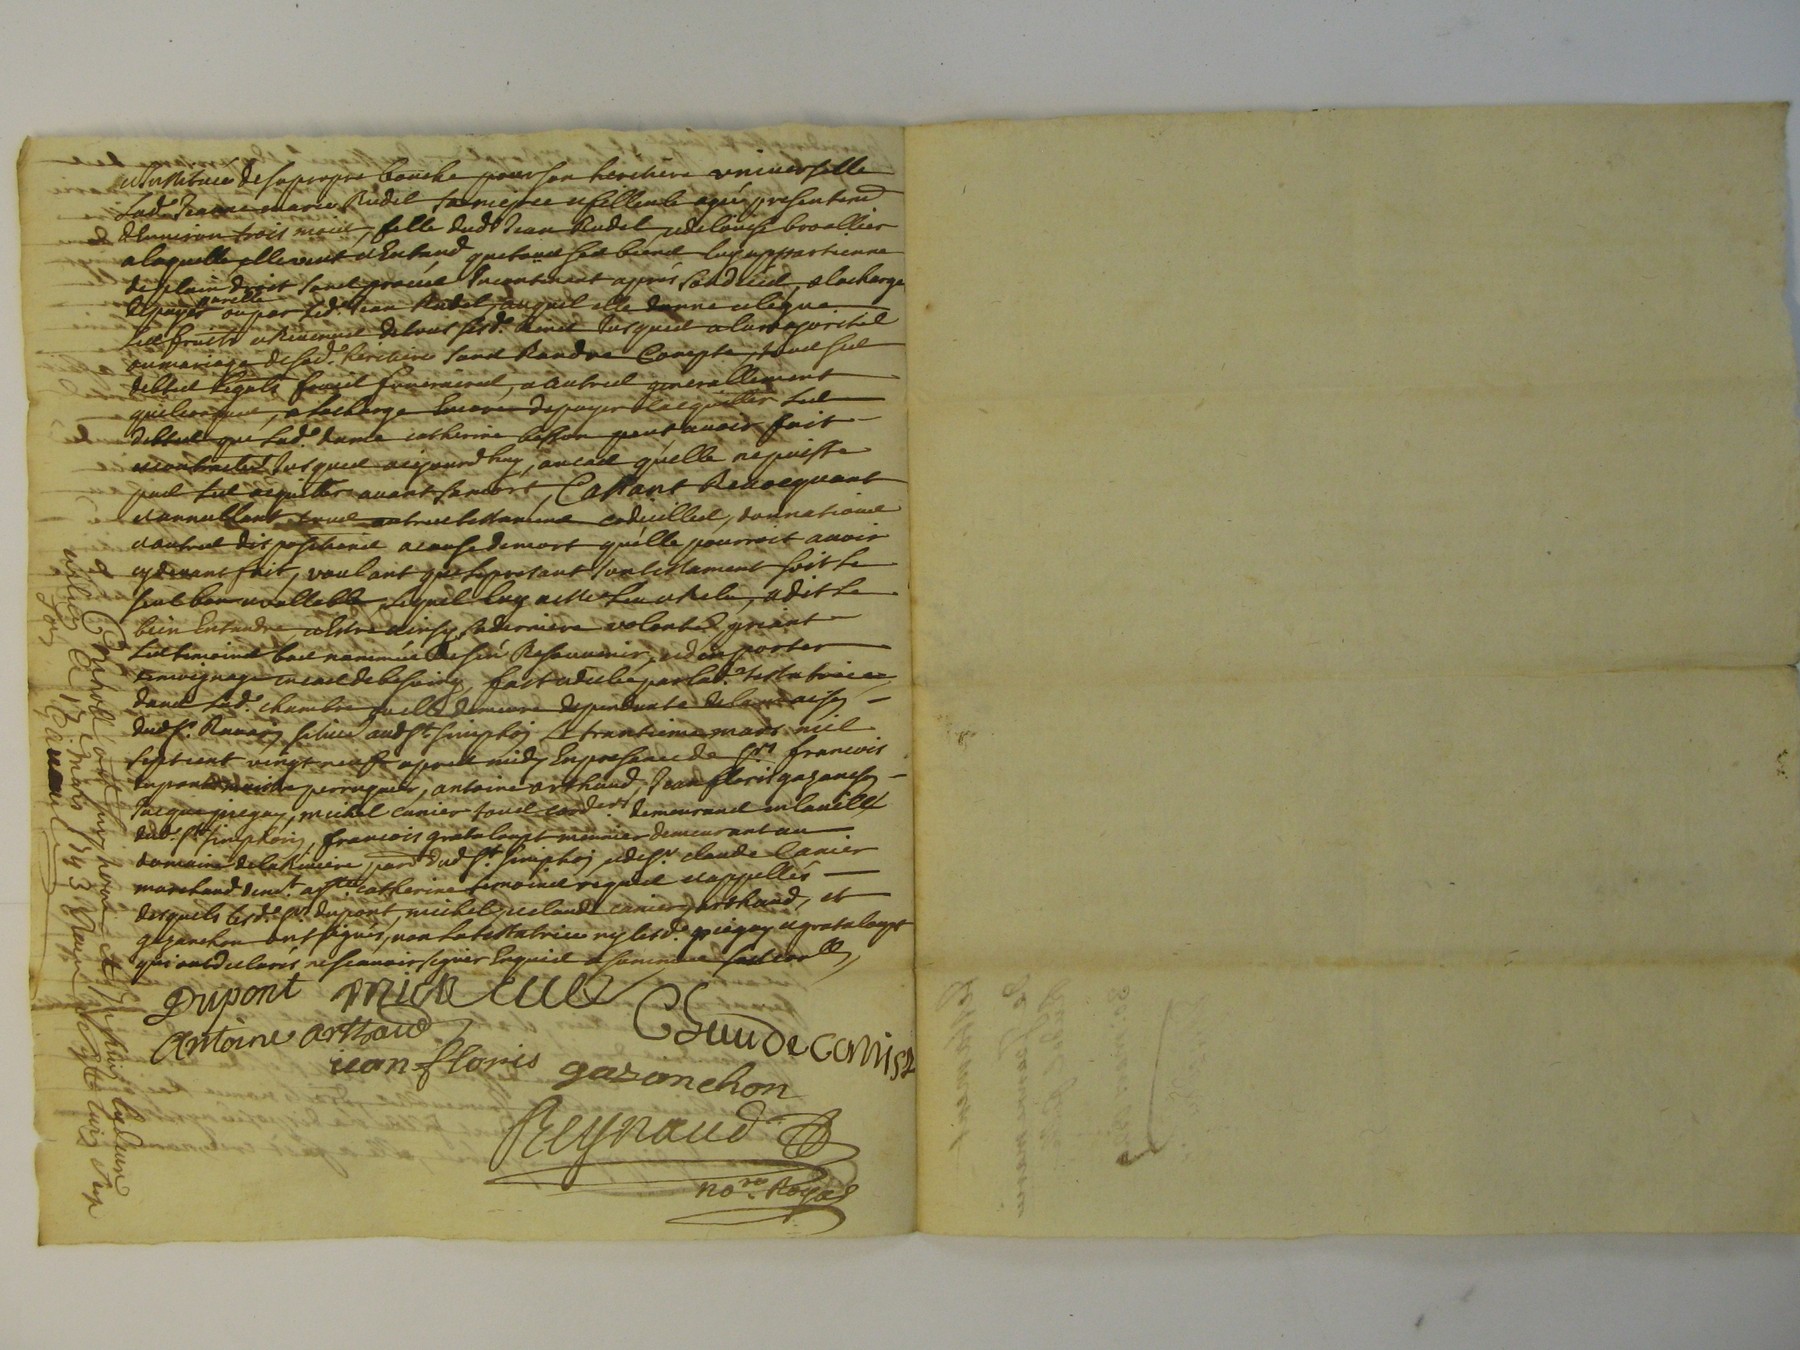 et institue de sa propre bouche pour son heritiere universelle
Lad.e Jeanne marie Rudel sa niepce et filleule agée presentem.t
d'Environ trois mois, fille dud.t Jean Rudel et de louise broallier
a laquelle elle veut et Entend que tous ses biens luy appartienne
de plain droit sans procés Incontinent apprés son deceds, a la charge
de payer par elle ou par led.t Jean Rudel auquel elle donne et legue
Les fruits et Revenus de tous sesd.s biens Jusques a la majorité
ou mariage de sad.e heritiere sans Randre Compte, tous ses
debtes legats fraix funeraires, et autres generallement
quelconques, a la charge Encore de payer et acquitter Les
debtes que Lad.e dame catherine besson peut avoir fait
et contractés Jusques aujourd'huy, au cas qu'elle ne puisse
pas les acquitter avant sa mort, Cassant Revocquant
et annullant tous autres testaments codicilles, donnations
et autres dispositions a cause de mort qu'elle pourroit avoir
cy devant fait, voulant que le presant son testament soit le
seul bon et vallable, lequel luy a esté leu et Relu, a dit le
bien Entendre et Estre ainsy sa derniere volonté priant
Les temoins bas nommés de s'en Resouvenir, et d'en porter
temoignage en cas de besoing, fait et declaré par lad.e testatrice
dans lad.e chambre qu'elle demeure dependante de la maison
dud.t Sr. situee aud.t St. simphoriⁿ le trantieme mars mil
sept cent vingt neuf apres midy En presence de Srs. francois
dupont maitre perruquier, antoine arthaud, Jean floris gazanchon
Jacque piegay, michel canier tous cord.rs demeurants en la ville
dud.t St. simphorien, francois grataloupt meunier demeurant au
domaine de la Riviere, parr.e dud.t St. simphorien et de Sr. claude Canier
marchand dem.t a Ste. catherine temoins requis et appellés
desquels lesd.s Srs. dupont, michel et claude canier, arthaud, et
gazanchon ont signés, non la testatrice ny lesd.s piegay et grataloupt
qui ont declarés ne sçavoir signer Enquis et sommés
Dupont michel
Claude canier
Antoine arthaud
jean floris gazanchon
Reynaud
no.re Royal
Controllé
Le mars